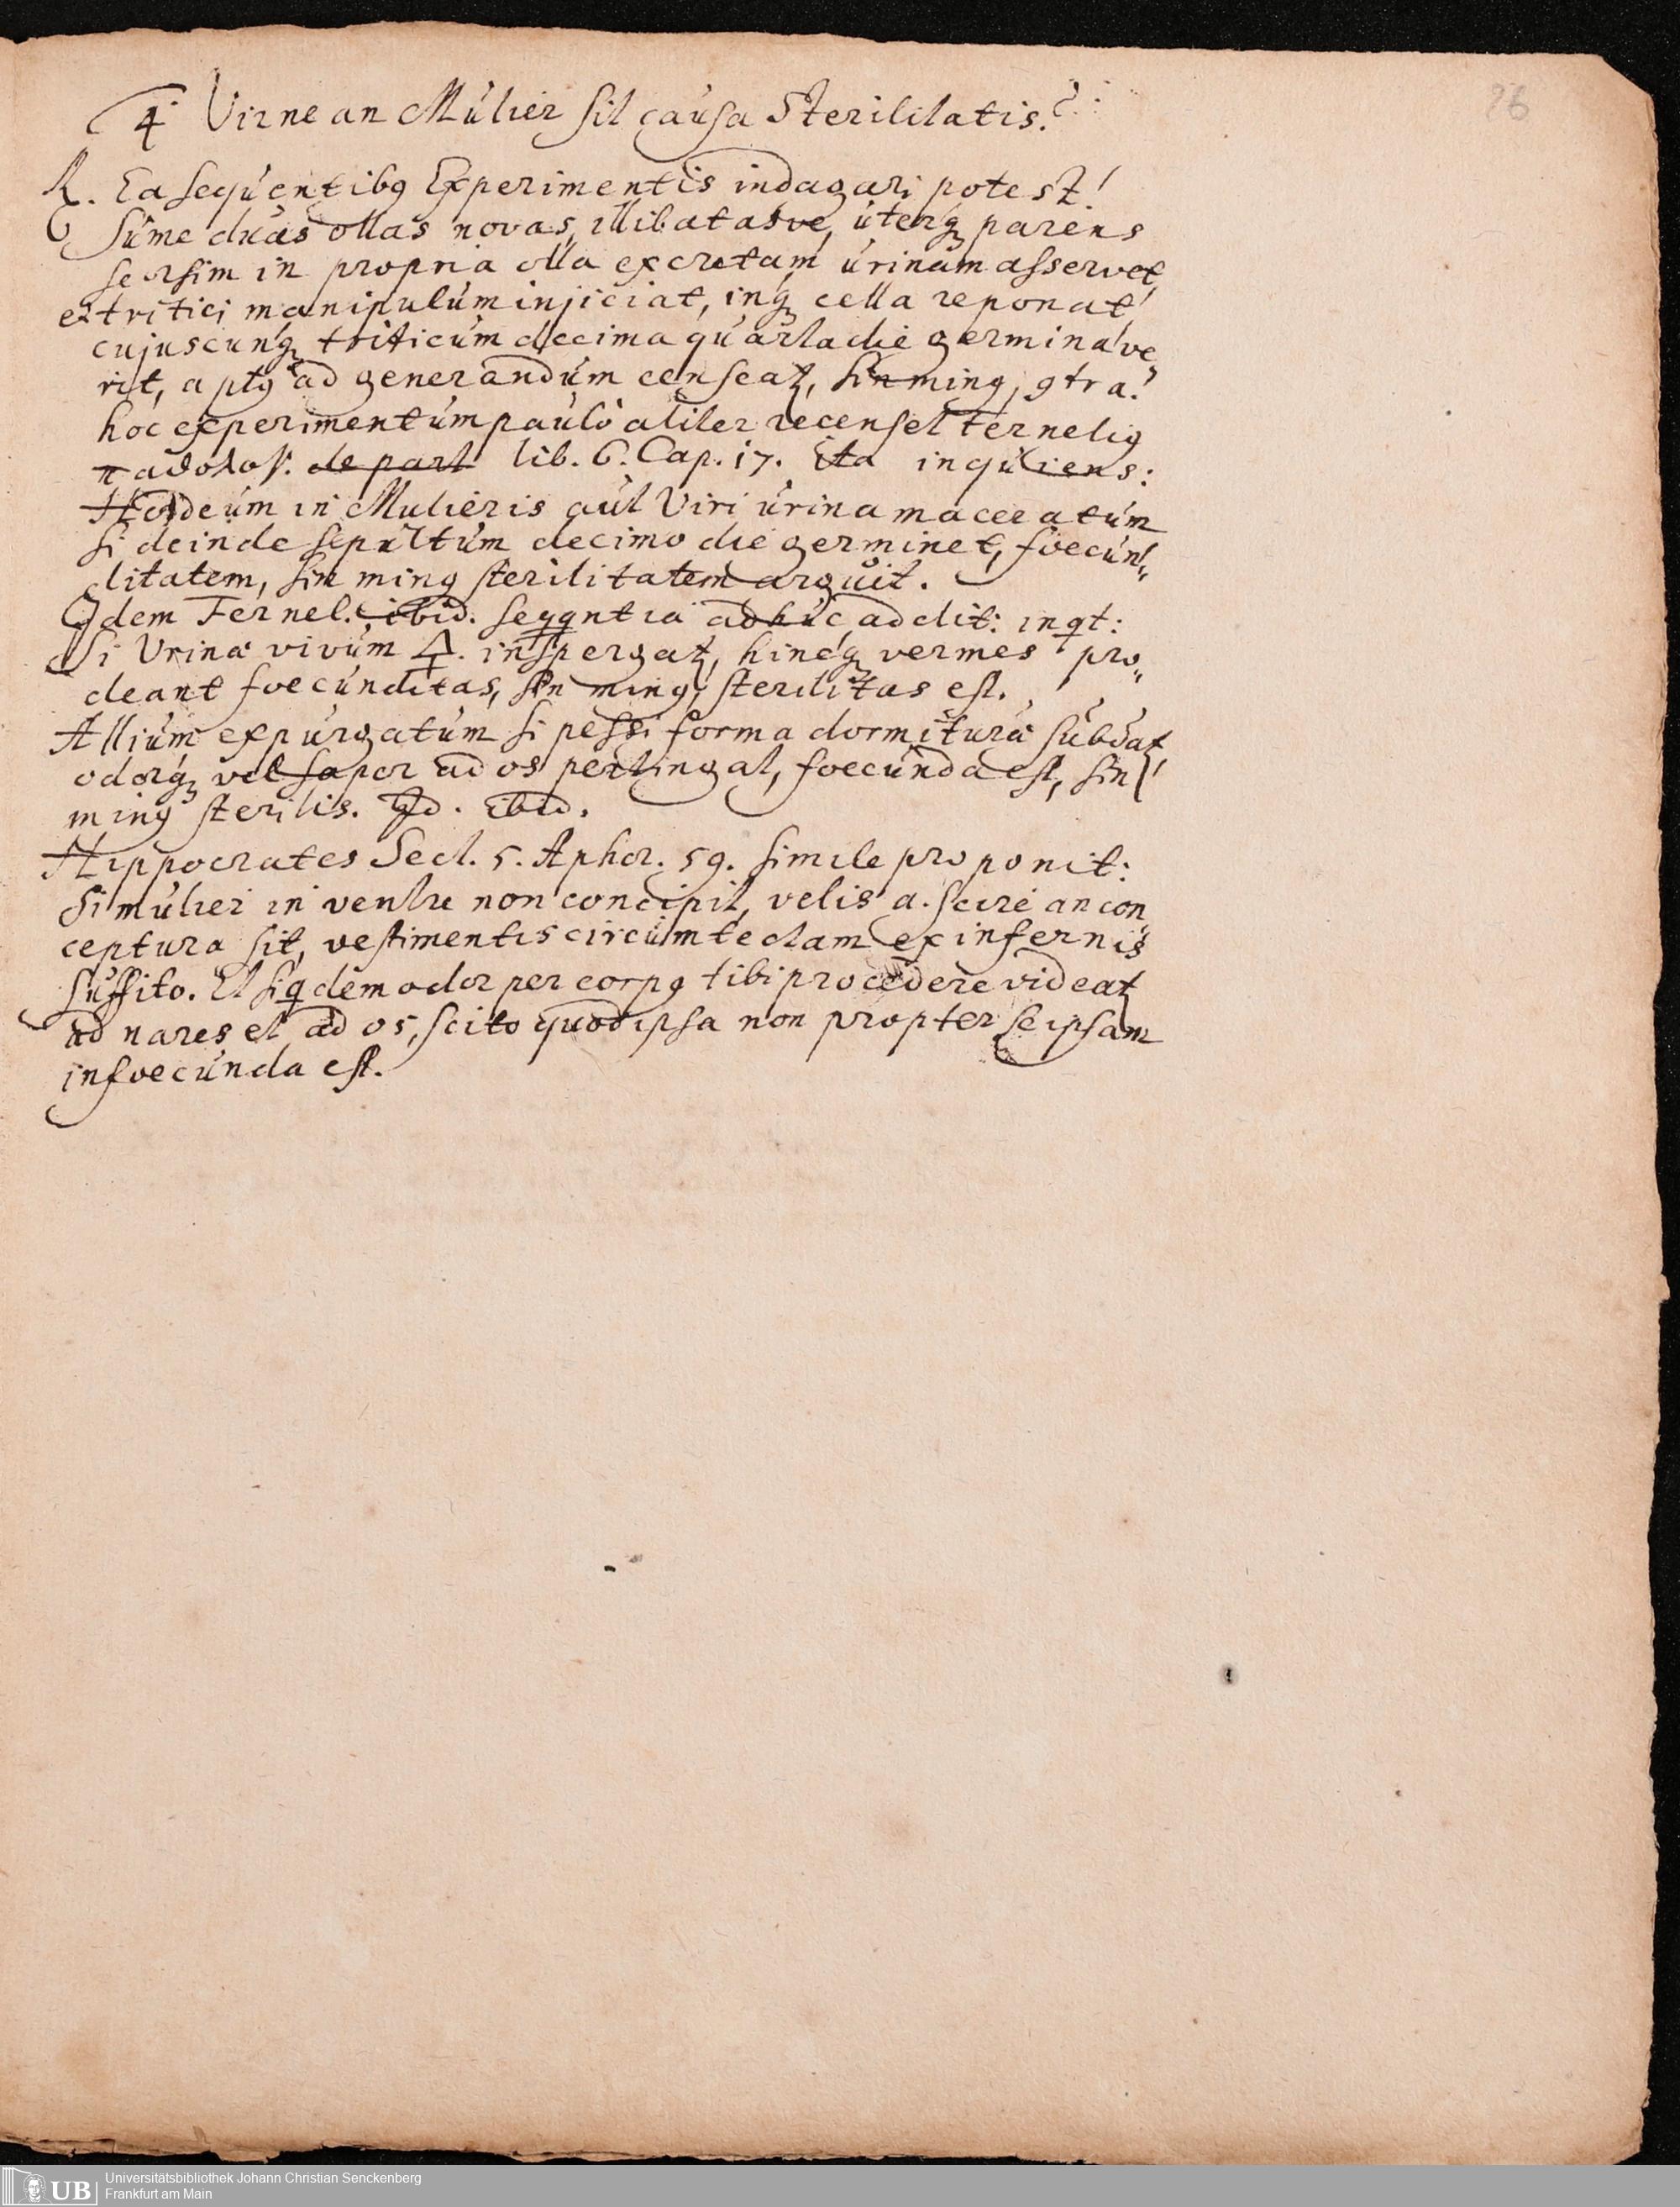 4 Virne an Mulier sit causa Sterilitatis?
26
R. Ea sequentibꝰ Experimentis indagari potest!
Sume duas ollas novas, illibatasve, uterqꝫ parens
seorsim in propria olla excretam urinam asservet,
et tritici manipulum injiciat, inqꝫ cella reponat!
cujuscunqꝫ triticum decima quarta die germinave„
rit, aptꝰ ad generandum censeatꝛ, sin minꝰ, ꝯtra.
hoc experimentum paulò aliter recenset Ferneliꝰ
παθολογ. de part lib. 6. Cap. 17. Ita inquiens:
Hordeum in Mulieris aut Viri urina maceratum
si deinde sepultum decimo die germinet, foecun„
ditatem, sin minꝰ sterilitatem arguit.
Idem Fernel. ibid. seqqntia adhuc addit: inqt:
Si Urinæ vivum 🜍. inspergatꝛ, hincqꝫ vermes pro„
deant foecunditas, sin minꝰ, sterilitas est.
Allium expurgatum si pessi forma dormiturae subdatꝛ,
odorqꝫ vel sapor ad os pertingat, foecunda est, sin
minꝰ sterilis. Id. ibid.
Hippocrates Sect. 5. Aphor. 59. simile proponit:
Si mulier in ventre non concipit, velis a. scire an con„
ceptura sit, vestimentis circumtectam ex infernis
suffito. Et siqdem odor per corpꝰ tibi procedere videatꝛ
ad nares et ad os, scito quod ipsa non propter seipsam
infoecunda est.
UB
Universitätsbibliothek Johann Christian Senckenberg
Frankfurt am Main